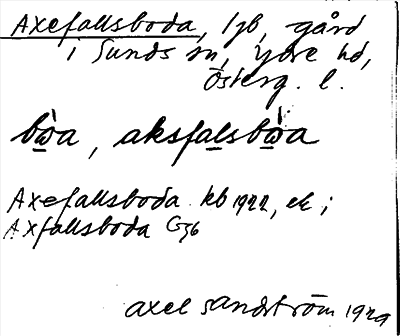 Axefallsboda, lgh, gård
i Sunds sn, Ydre hd,
Österg. l.
bὼa, aksfalsbὼa
Axefallsboda kb 1922, ek;
Axfallsboda G36
Axel Sandström 1929